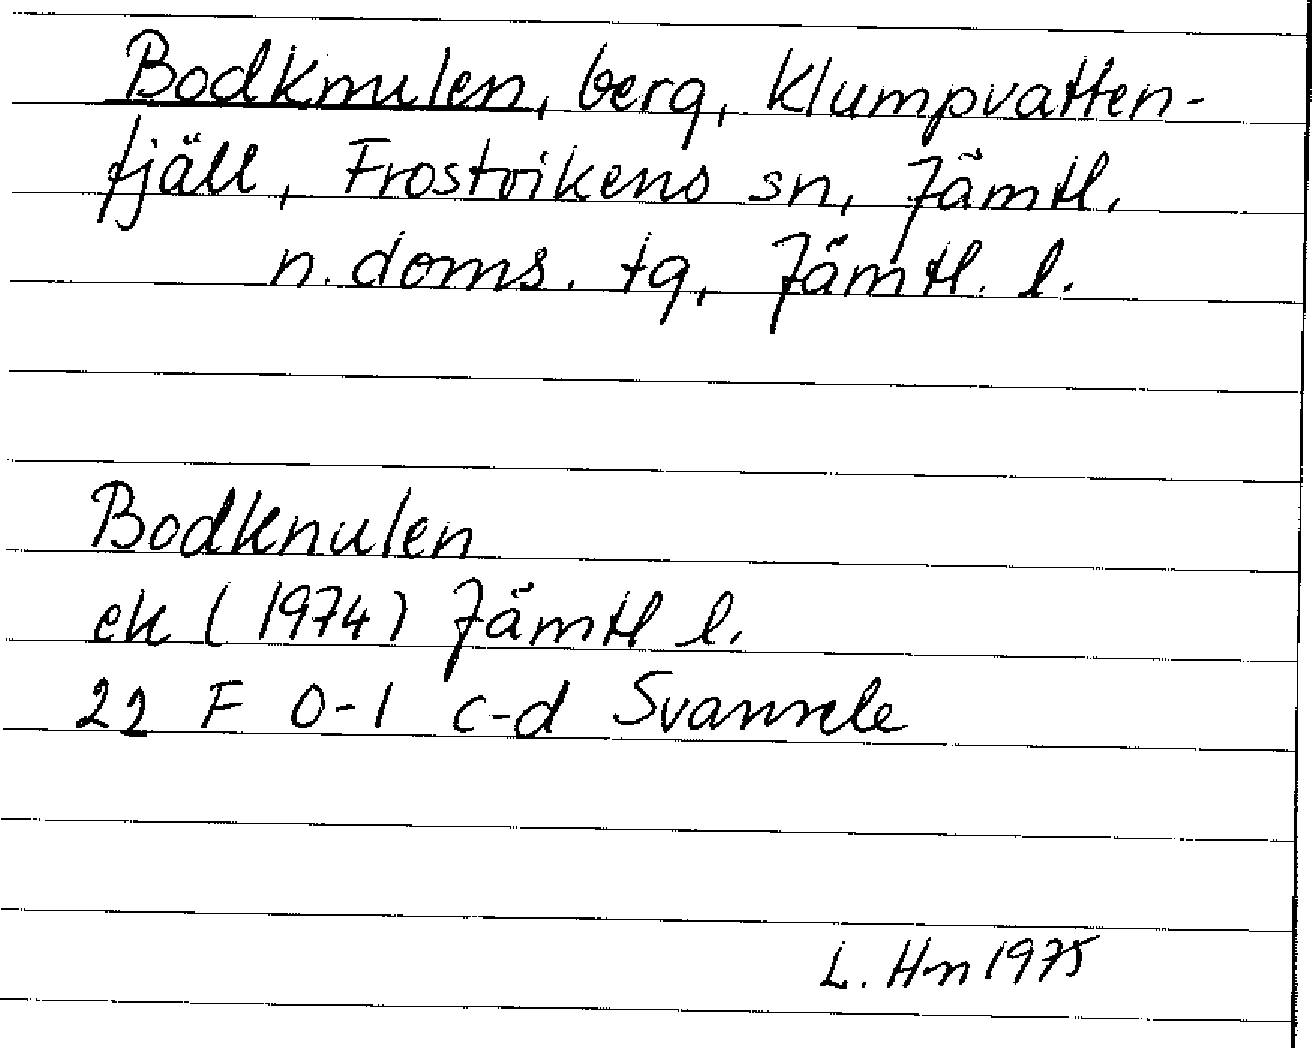 Bodknulen, berg, Klumpvatten-
fjäll, Frostvikens sn, Jämtl.
n. doms. tg, Jämtl. l.
Bodknulen
ek (1974) Jämtl l.
22 F 0-1 c-d Svansele
L. Hn 1975